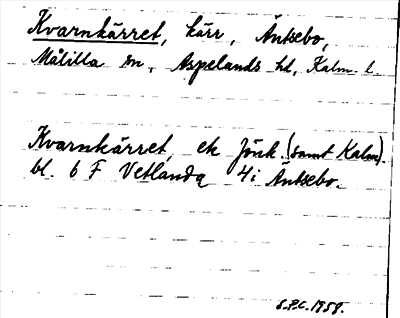 Kvarnkärret, kärr, Äntsebo,
Målilla sn, Aspelands hd, Kalm. l.
Kvarnkärret, ek Jönk. (samt Kalm).
bl. 6 F Vetlanda 4i Äntsebo.
S.P.C. 1958.